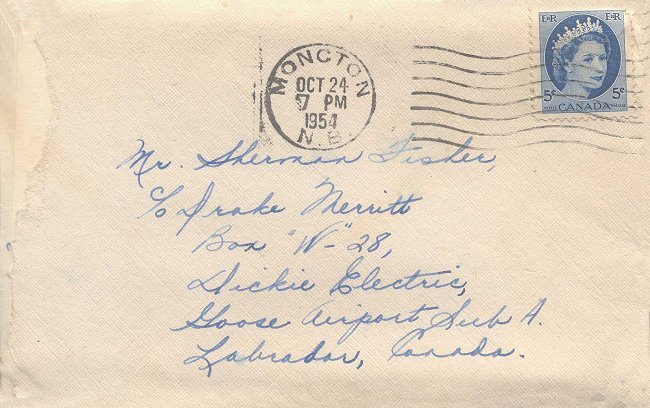 MONCTON
OCT 24
7 PM
1954
N.B.
EⅡR EⅡR
5¢ 5¢
CANADA
Mr. Sherman Fisher,
c/o Drake Merritt
Box "W-" 28,
Dickie Electric,
Goose Airport Sub A.
Labrador, Canada.